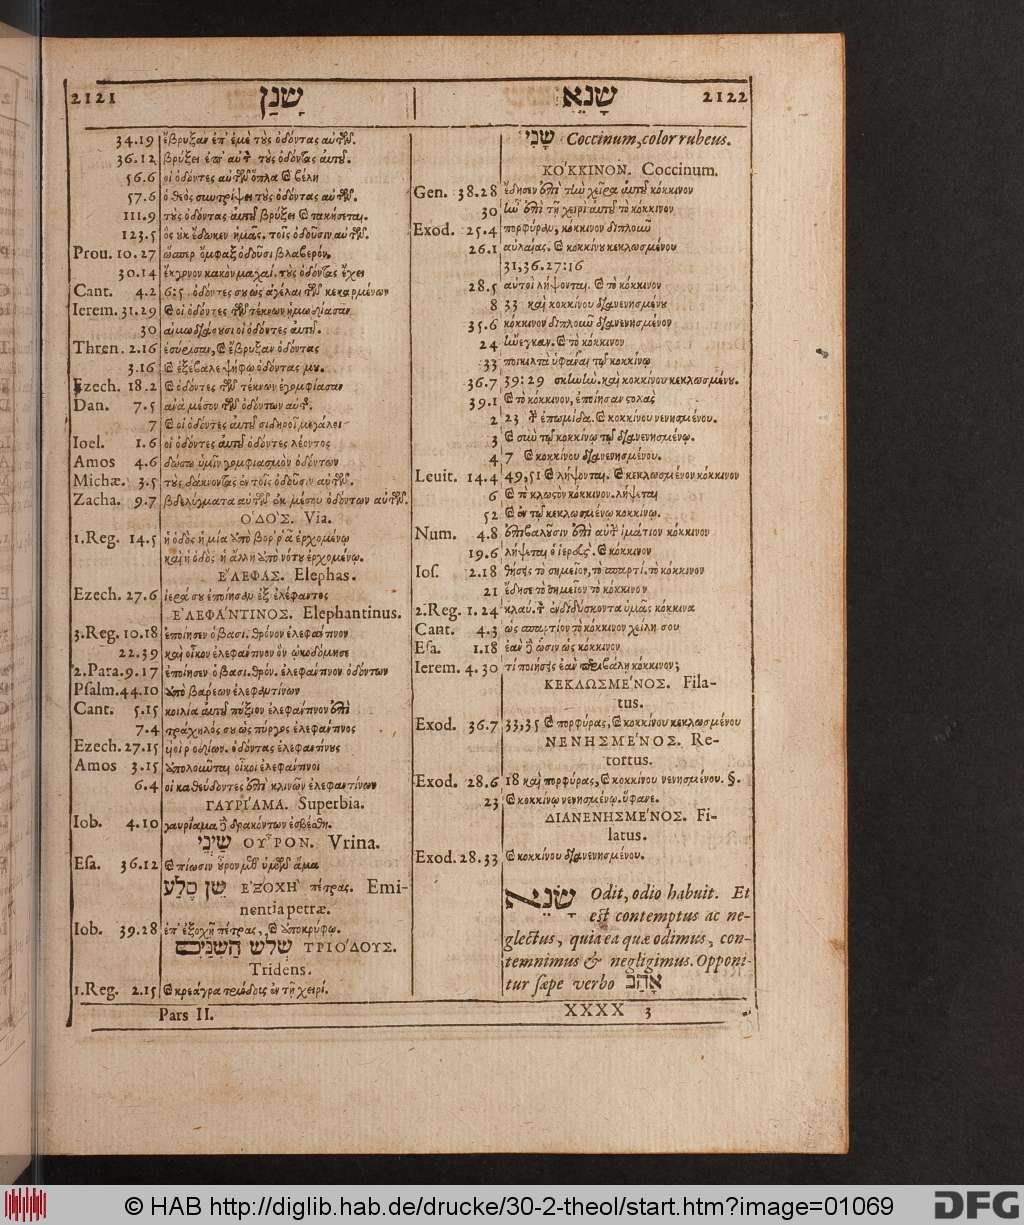 2121 שָׁנַן
שָׂנֵא 2122
34.19 ἔβρυξαν ἐπ' ἐμὲ τοὺς ὀδόντας αὐτῶν.
36.12 βρύξει ἐπ' αὐτὸν τοὺς ὀδόντας αὐτοῦ.
56.6 οἱ ὀδόντες αὐτῶν ὅπλα καὶ βέλη
57.6 ὁ θεὸς συντρίψει τοὺς ὀδόντας αὐτῶν.
111.9 τοὺς ὀδόντας αὐτοῦ βρύξει καὶ τακήσεται.
123.5 ὃς οὐκ ἔδωκεν ἡμᾶς. τοῖς ὀδοῦσιν αὐτῶν.
Prou. 10.27 ὥσπερ ὄμφαξ ὀδοῦσι βλαβερόν,
30.14 ἔκγονον κακὸν μαχαί. τοὺς ὀδόντας ἔχει
Cant. 4.2 6:5 ὀδόντες σου ὡς ἀγέλαι τῶν κεκαρμένων
Ierem. 31.29 καὶ οἱ ὀδόντες τῶν τέκνων ἡμωδίασαν
30 αἱμωδιάσουσι οἱ ὀδόντες αὐτοῦ.
Thren. 2.16 ἐσύρισαν, καὶ ἔβρυξαν ὀδόντας
3.16 καὶ ἐξέβαλε ψήφῳ ὀδόντας μου.
Ezech. 18.2 καὶ ὀδόντες τῶν τέκνων ἐγομφίασαν
Dan. 7.5 ἀνὰ μέσον τῶν ὀδόντων αὐτ.
7 καὶ οἱ ὀδόντες αὐτοῦ σιδηροῖ μεγάλοι
Ioel. 1.6 οἱ ὀδόντες αὐτοῦ ὀδόντες λέοντος
Amos 4.6 δώσω ὑμῖν γομφιασμὸν ὀδόντων
Michæ. 3.5 τοὺς δάκνοντας ἐν τοῖς ὀδοῦσιν αὐτῶν.
Zacha. 9.7 βδελύγματα αὐτῶν ἐκ μέσου ὀδόντων αὐτῶν.
Ο῾ΔΟ῾Σ. Via.
1.Reg. 14.5 ἡ ὁδὸς ἡ μία ὑπὸ βορρᾶ ἐρχομένῳ
καὶ ἡ ὁδὸς ἡ ἄλλη ὑπὸ νότου ἐρχομένῳ.
Ε᾿ΛΕΦΑΣ. Elephas.
Ezech. 27.6 ἱερά σου ἐποίησαν ἐξ ἐλέφαντος
Ε᾿ΛΕΦΑ΄ΝΤΙΝΟΣ. Elephantinus.
3.Reg. 10.18 ἐποίησεν ὁ βασι. θρόνον ἐλεφάντινον
22.39 καὶ οἶκον ἐλεφάντινον ὃν ᾠκοδόμησε
2.Para. 9.17 ἐποίησεν ὁ βασι. θρόν. ἐλεφάντινον ὀδόντων
Psalm. 44.10 ἀπὸ βαρέων ἐλεφαντίνων
Cant. 5.15 κοιλία αὐτοῦ πύξιον ἐλεφάντινον ἐπὶ
7.4 τράχηλός σου ὡς πύργος ἐλεφάντινος
Ezech. 27.15 ὀδόντας ἐλεφαντίνους
Amos 3.15 ἀπολοῦνται οἶκοι ἐλεφάντινοι
6.4 οἱ καθεύδοντες ἐπὶ κλινῶν ἐλεφαντίνων
ΓΑΥΡΙ΄ΑΜΑ. Superbia.
Iob. 4.10 γαυρίαμα δὲ δρακόντων ἐσβέσθη.
שֵׁינֵי ΟΥ῏ΡΟΝ. Vrina.
Esa. 36.12 καὶ πίωσιν οὖρον μεθ' ὑμῶν ἅμα
שֵׁן סֶלַע Ε᾿ΞΟΧΗ` πέτρας. Emi-
nentia petræ.
Iob. 39.28 ἐπ' ἐξοχῇ πέτρας, καὶ ἀποκρύφῳ.
שְׁלֹשׁ הַשִּׁנַּיִם ΤΡΙΟ΄ΔΟΥΣ.
Tridens.
1.Reg. 2.13 καὶ κρεάγρα τριόδους ἐν τῇ χειρί.
Pars II.
שָׁנִי Coccinum, color rubeus.
ΚΟ΄ΚΚΙΝΟΝ. Coccinum.
Gen. 38.28 ἔδησεν ἐπὶ τὴν χεῖρα αὐτοῦ κόκκινον
30 ἦν ἐπὶ τῇ χειρὶ αὐτοῦ τὸ κόκκινον
Exod. 25.4 πορφύραν, κόκκινον διπλοῦν
26.1 αὐλαίας. καὶ κοκκίνου κεκλωσμένου
31,36.27:16
28.5 αὐτοὶ λήψονται. καὶ τὸ κόκκινον
8 33 καὶ κοκκίνου διανενησμένου
35.6 κόκκινον διπλοῦν διανενησμένον
24 ἤνεγκαν. καὶ τὸ κόκκινον
33 ποικιλτὰ ὑφᾶναι τῷ κοκκίνῳ
36.7 39:29 σκηνῶν. καὶ κοκκίνου κεκλωσμένου.
39.1 καὶ τὸ κόκκινον, ἐποίησαν στολὰς
2 23 τ ἐπωμίδα. καὶ κοκκίνου νενησμένου.
3 καὶ σὺν τῷ κοκκίνῳ τῷ διανενησμένῳ.
4 7 καὶ κοκκίνου διανενησμένου.
Leuit. 14.4 49,51 καὶ λήψονται. καὶ κεκλωσμένον κόκκινον
6 καὶ τὸ κλωστὸν κόκκινον. λήψεται
52 καὶ ἐν τῷ κεκλωσμένῳ κοκκίνῳ.
Num. 4.8 ἐπιβαλοῦσιν ἐπ' αὐτ ἱμάτιον κόκκινον
19.6 λήψεται ὁ ἱερεὺς. καὶ κόκκινον
Ios. 2.18 θήσεις τὸ σημεῖον, τὸ σπαρτί. τὸ κόκκινον
21 ἔδησε τὸ σημεῖον τὸ κόκκινον
2.Reg. 1.24 κλαύ. τ ἐνδιδύσκοντα ὑμᾶς κόκκινα
Cant. 4.3 ὡς σπαρτίον τὸ κόκκινον χείλη σου
Esa. 1.18 ἐὰν δὲ ὦσιν ὡς κόκκινον
Ierem. 4.30 τί ποιήσεις ἐὰν περιβάλῃ κόκκινον;
ΚΕΚΛΩΣΜΕ΄ΝΟΣ. Fila-
tus.
Exod. 36.7 33,35 καὶ πορφύρας, καὶ κοκκίνου κεκλωσμένου
ΝΕΝΗΣΜΕ΄ΝΟΣ. Re-
tortus.
Exod. 28.6 18 καὶ πορφύρας, καὶ κοκκίνου νενησμένου. §.
23 καὶ κοκκίνῳ νενησμένῳ. ὕφανε.
ΔΙΑΝΕΝΗΣΜΕ΄ΝΟΣ. Fi-
latus.
Exod. 28.33 καὶ κοκκίνου διανενησμένου.
שָׂנֵא Odit, odio habuit. Et
est contemptus ac ne-
glectus, quia ea quæ odimus, con-
temnimus & negligimus. Opponi-
tur sæpe verbo אָהַב
XXXX 3
© HAB http://diglib.hab.de/drucke/30-2-theol/start.htm?image=01069
DFG